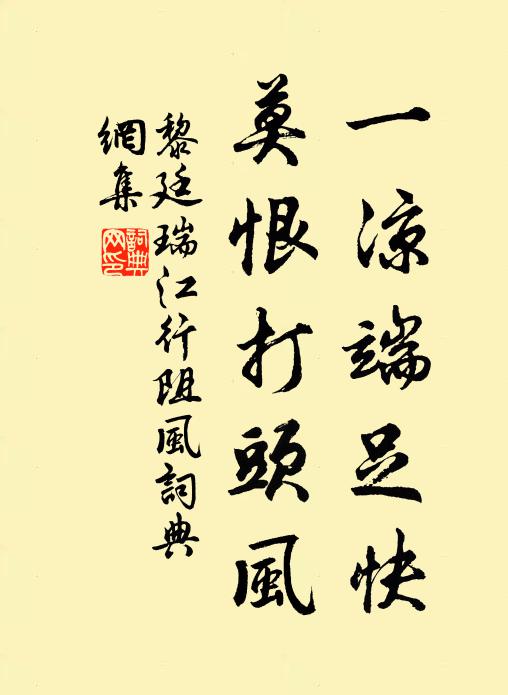 一涼端足快
莫恨打頭風
黎廷瑞江行阻風詞典
網集
詞典網印